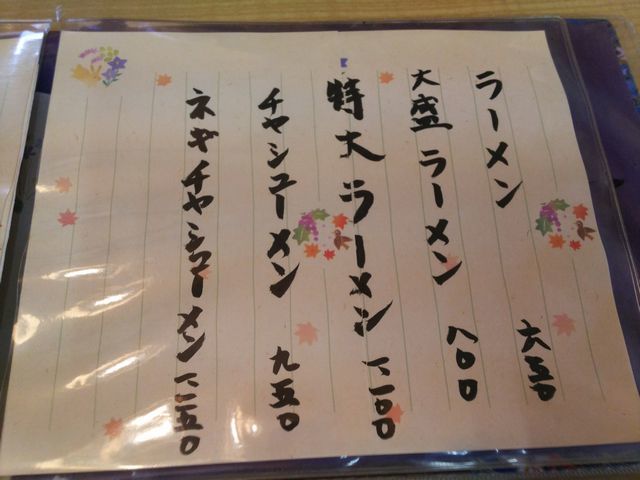 ラーメン 六五〇
大盛ラーメン 八〇〇
特大ラーメン 一一〇〇
チャシューメン 九五〇
ネギチャシューメン 一一五〇